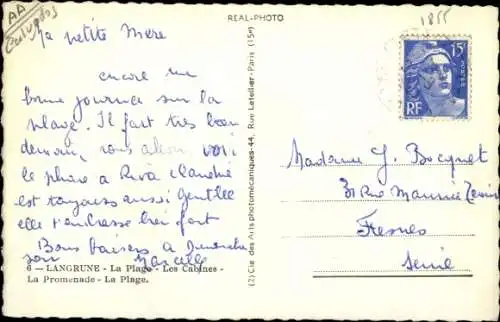 AA
Calvados
REAL-PHOTO
1855
Ma petite Mère
encore une
bonne journée sur la
plage. Il fait très bon
demain, nous allons voir
le phare à Riva Claudie
est toujours aussi gentille
elle t'embrasse très fort
Bons baisers à Dimanche
soir Marcelle
6 — LANGRUNE - La Plage - Les Cabines -
La Promenade - La Plage.
(2) Cie des Arts photomécaniques-44, Rue Letellier-Paris (15e)
15F
RF
Madame G. Bocquet
31 Rue Maurice
Fresnes
Seine